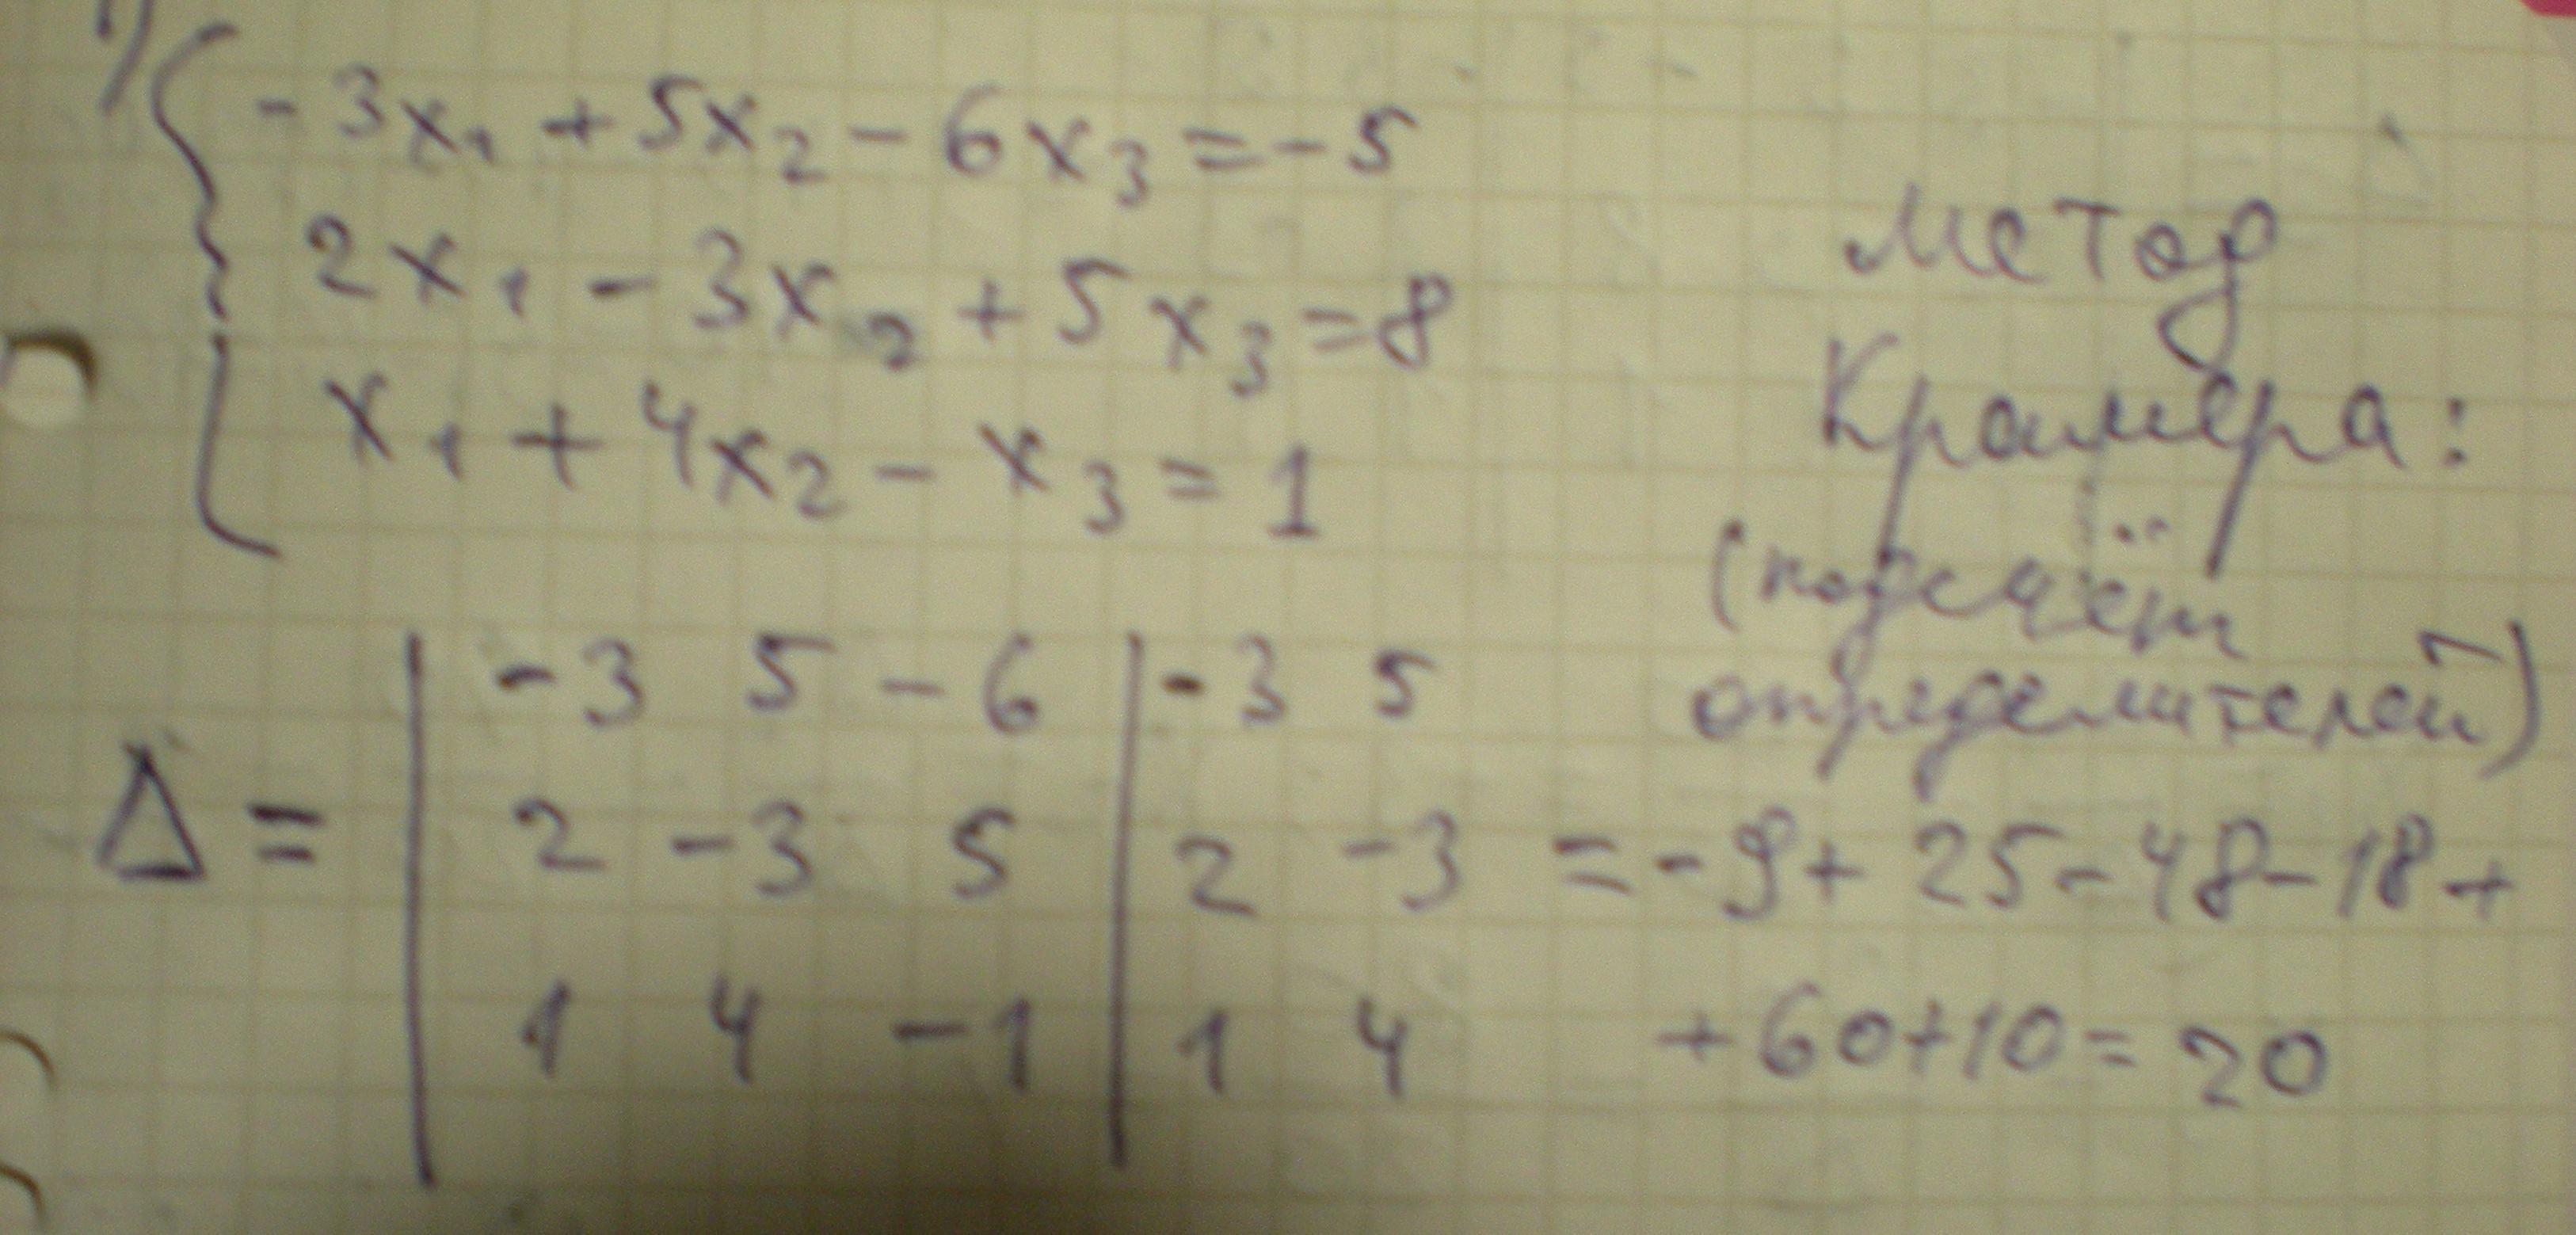 1)
-3x₁ + 5x₂ - 6x₃ = -5
2x₁ - 3x₂ + 5x₃ = 8
x₁ + 4x₂ - x₃ = 1
метод
Крамера:
(подсчёт
определителей)
-3 5 -6 | -3 5
Δ = | 2 -3 5 | 2 -3 = -9 + 25 - 48 - 18 +
1 4 -1 | 1 4 + 60 + 10 = 20